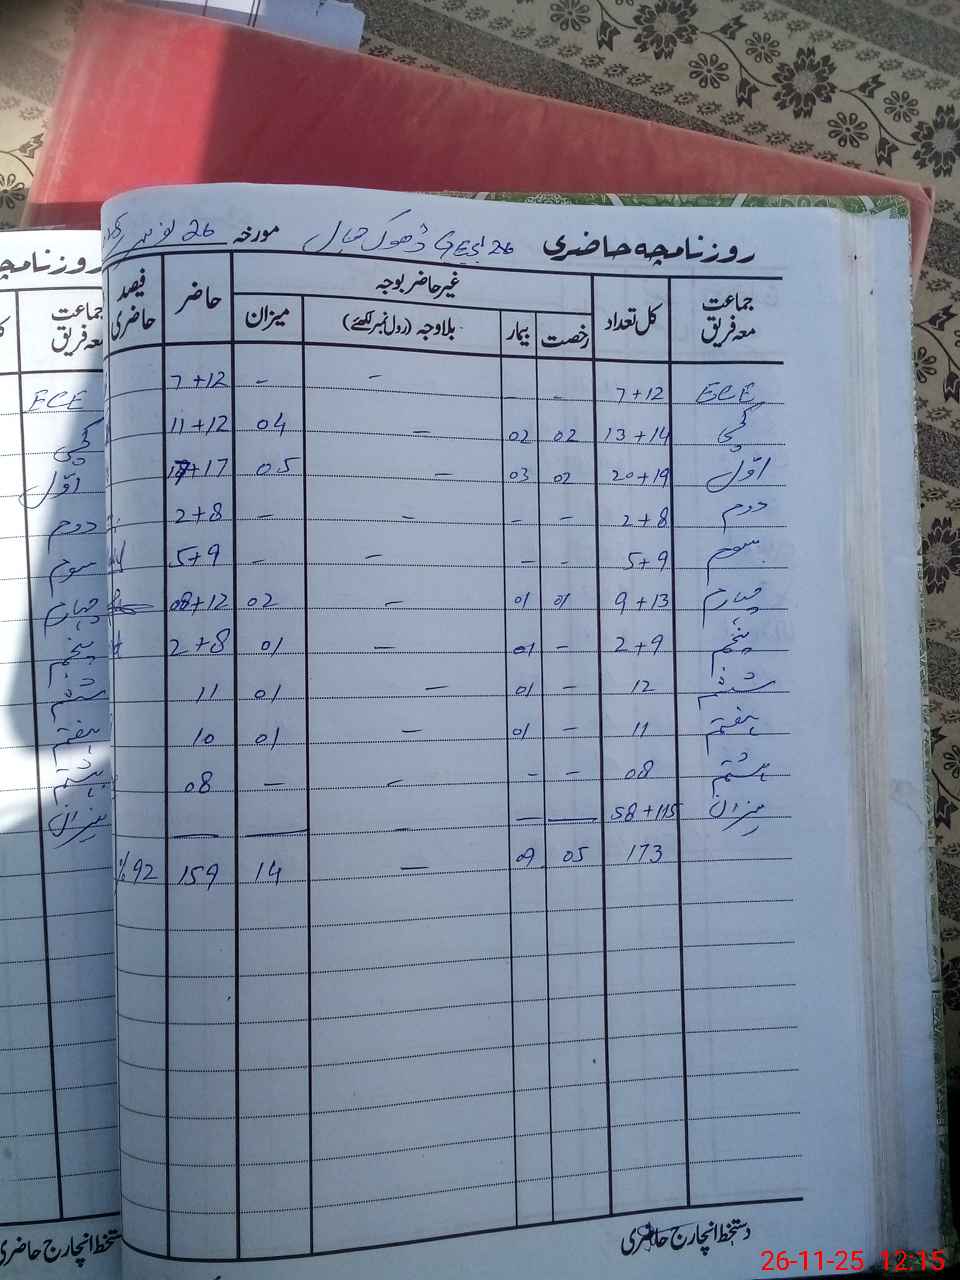 روزنامچہ حاضری GES ڈھوک مورخہ 26 نومبر
جماعت معہ فریق کل تعداد غیر حاضر بوجہ حاضر فیصد حاضری
رخصت بیمار بلاوجہ (رول نمبر لکھئے) میزان
ECE 7+12 - - - - 7+12
کچی 13+14 02 02 - 04 11+12
اوّل 20+19 02 03 - 05 17+17
دوم 2+8 - - - - 2+8
سوم 5+9 - - - - 5+9
چہارم 9+13 01 01 - 02 08+12
پنجم 2+9 - 01 - 01 2+8
ششم 12 - 01 - 01 11
ہفتم 11 - 01 - 01 10
ہشتم 08 - - - - 08
میزان 58+115
173 05 09 - 14 159 %92
دستخط انچارج حاضری
روزنامچہ
جماعت
معہ فریق
ECE
کچی
اوّل
دوم
سوم
چہارم
پنجم
ششم
ہفتم
ہشتم
میزان
دستخط انچارج حاضری
26-11-25 12:15